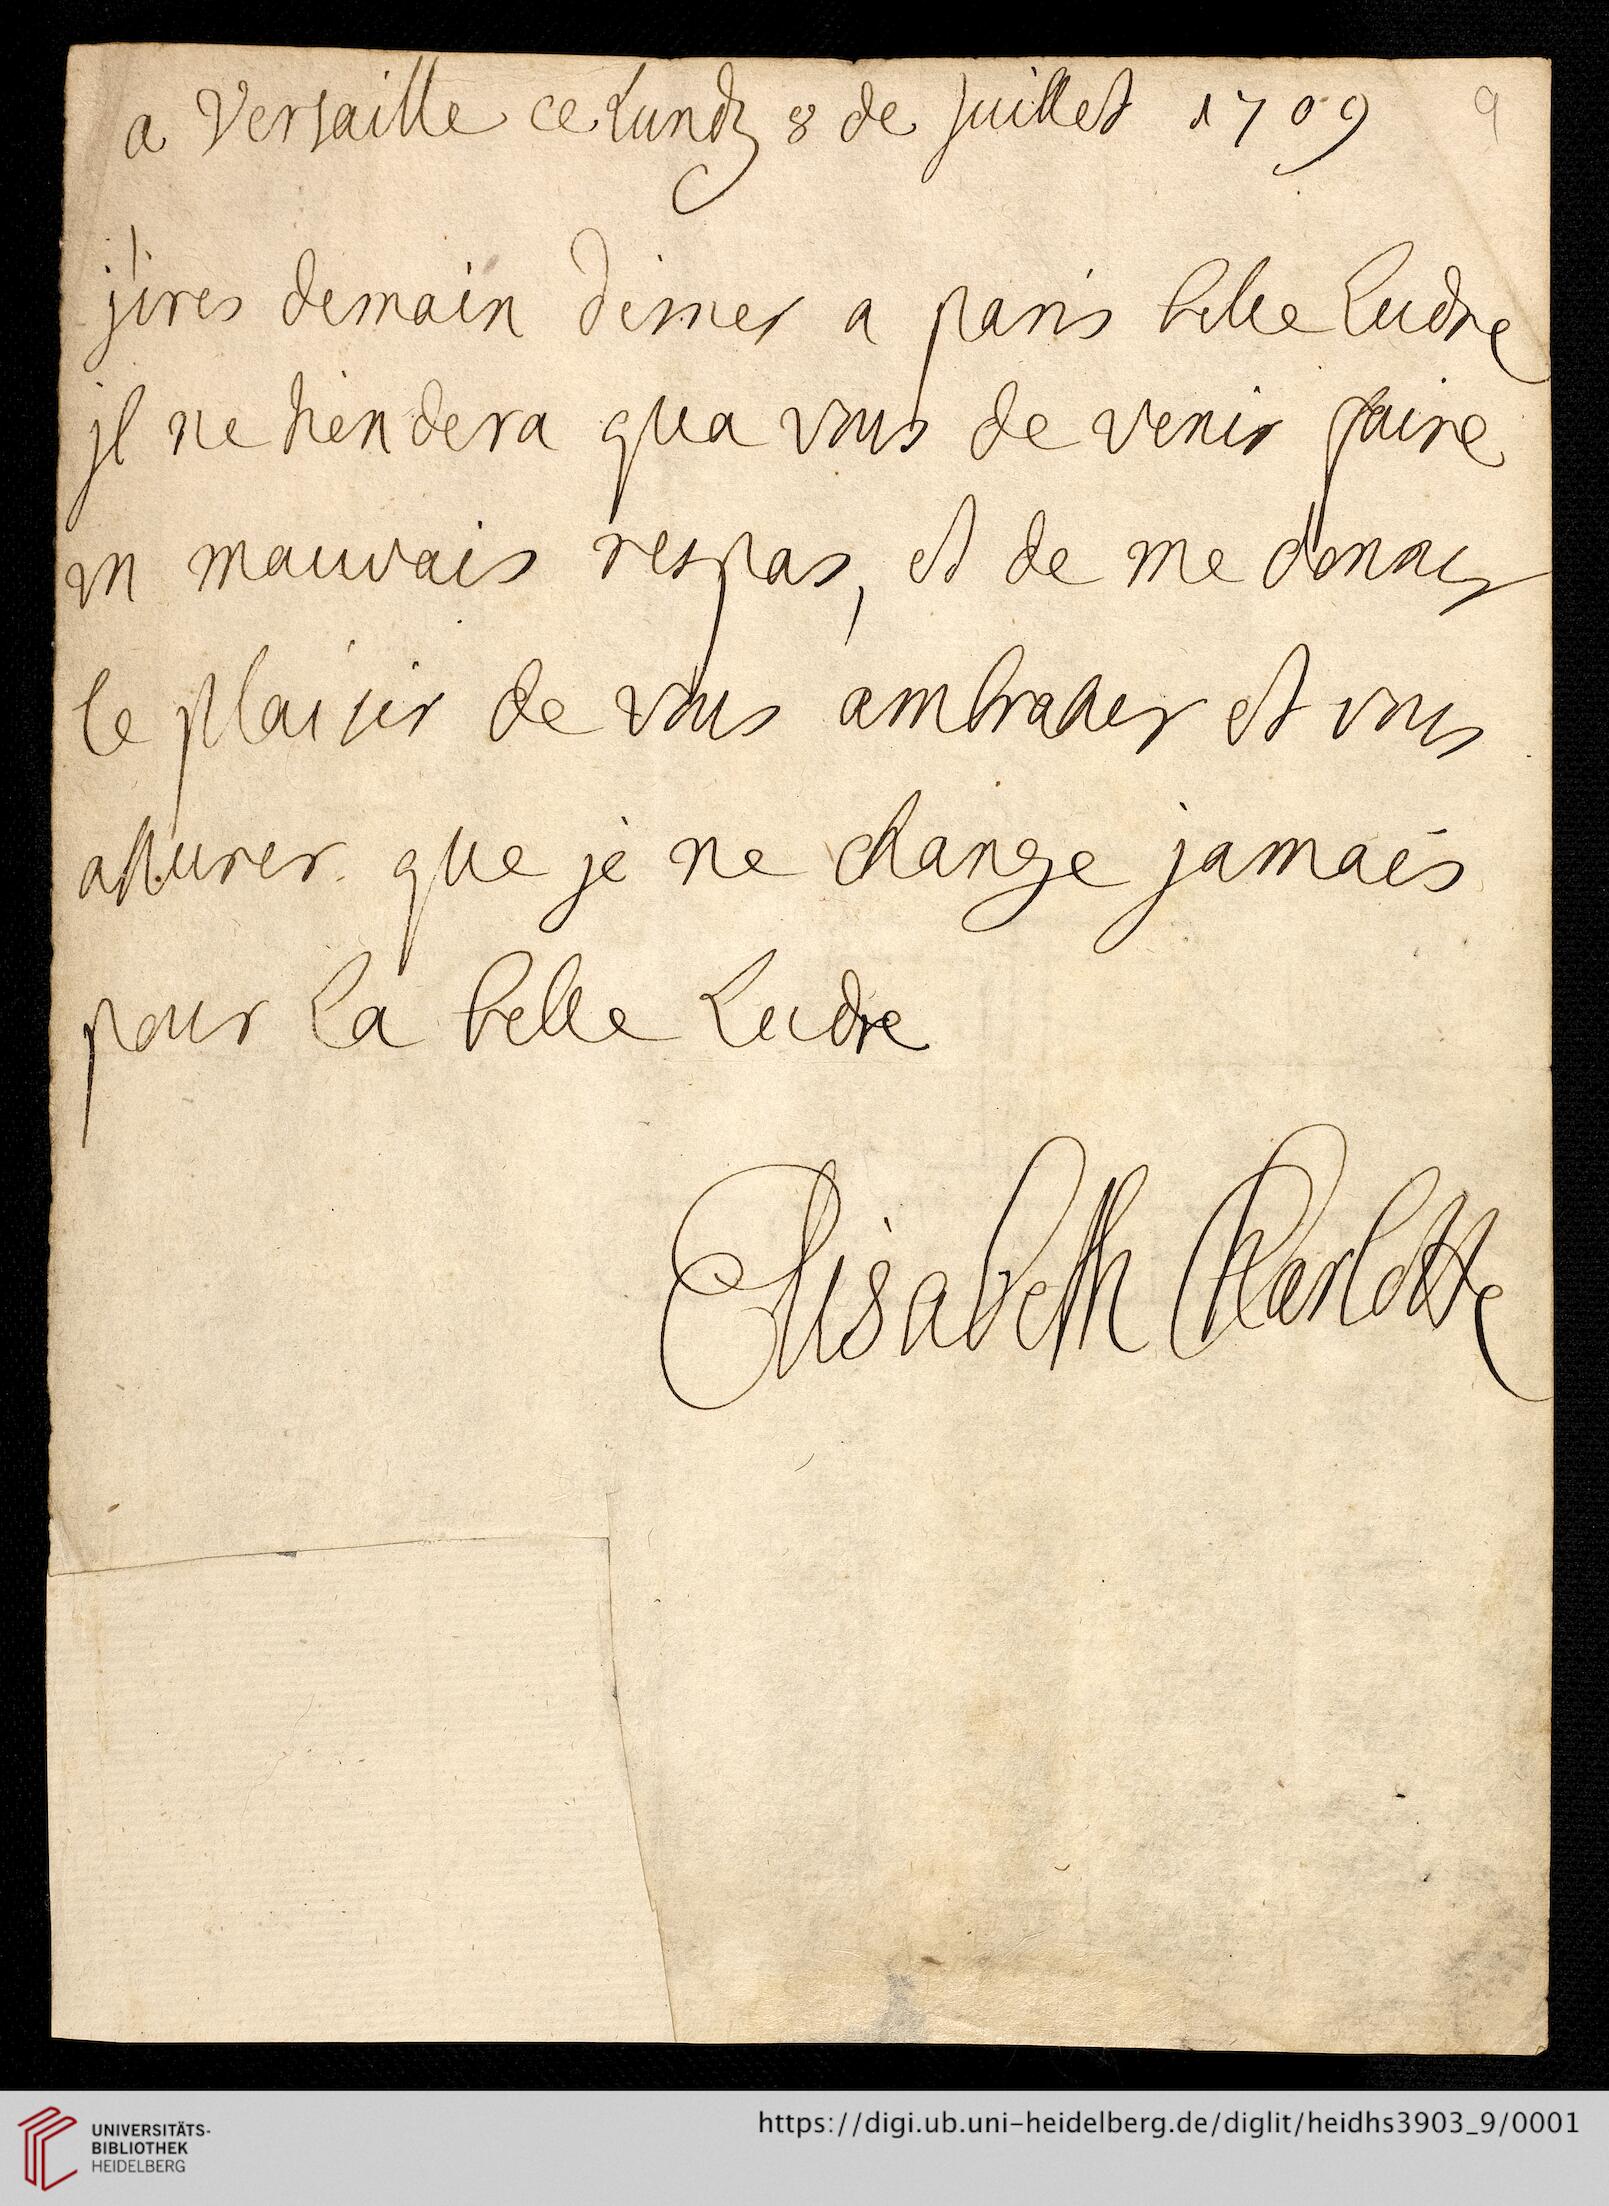 a Versaille ce Lundy 8 de juillet 1709
9
j'ires demain disner a paris belle Ludre
jl ne tiendera qua vous de venir faire
un mauvais respas, et de me donner
le plaisir de vous ambrasser et vous
assurer que je ne change jamais
pour la belle Ludre
Elisabeth Charlotte
UNIVERSITÄTS-
BIBLIOTHEK
HEIDELBERG
https://digi.ub.uni-heidelberg.de/diglit/heidhs3903_9/0001